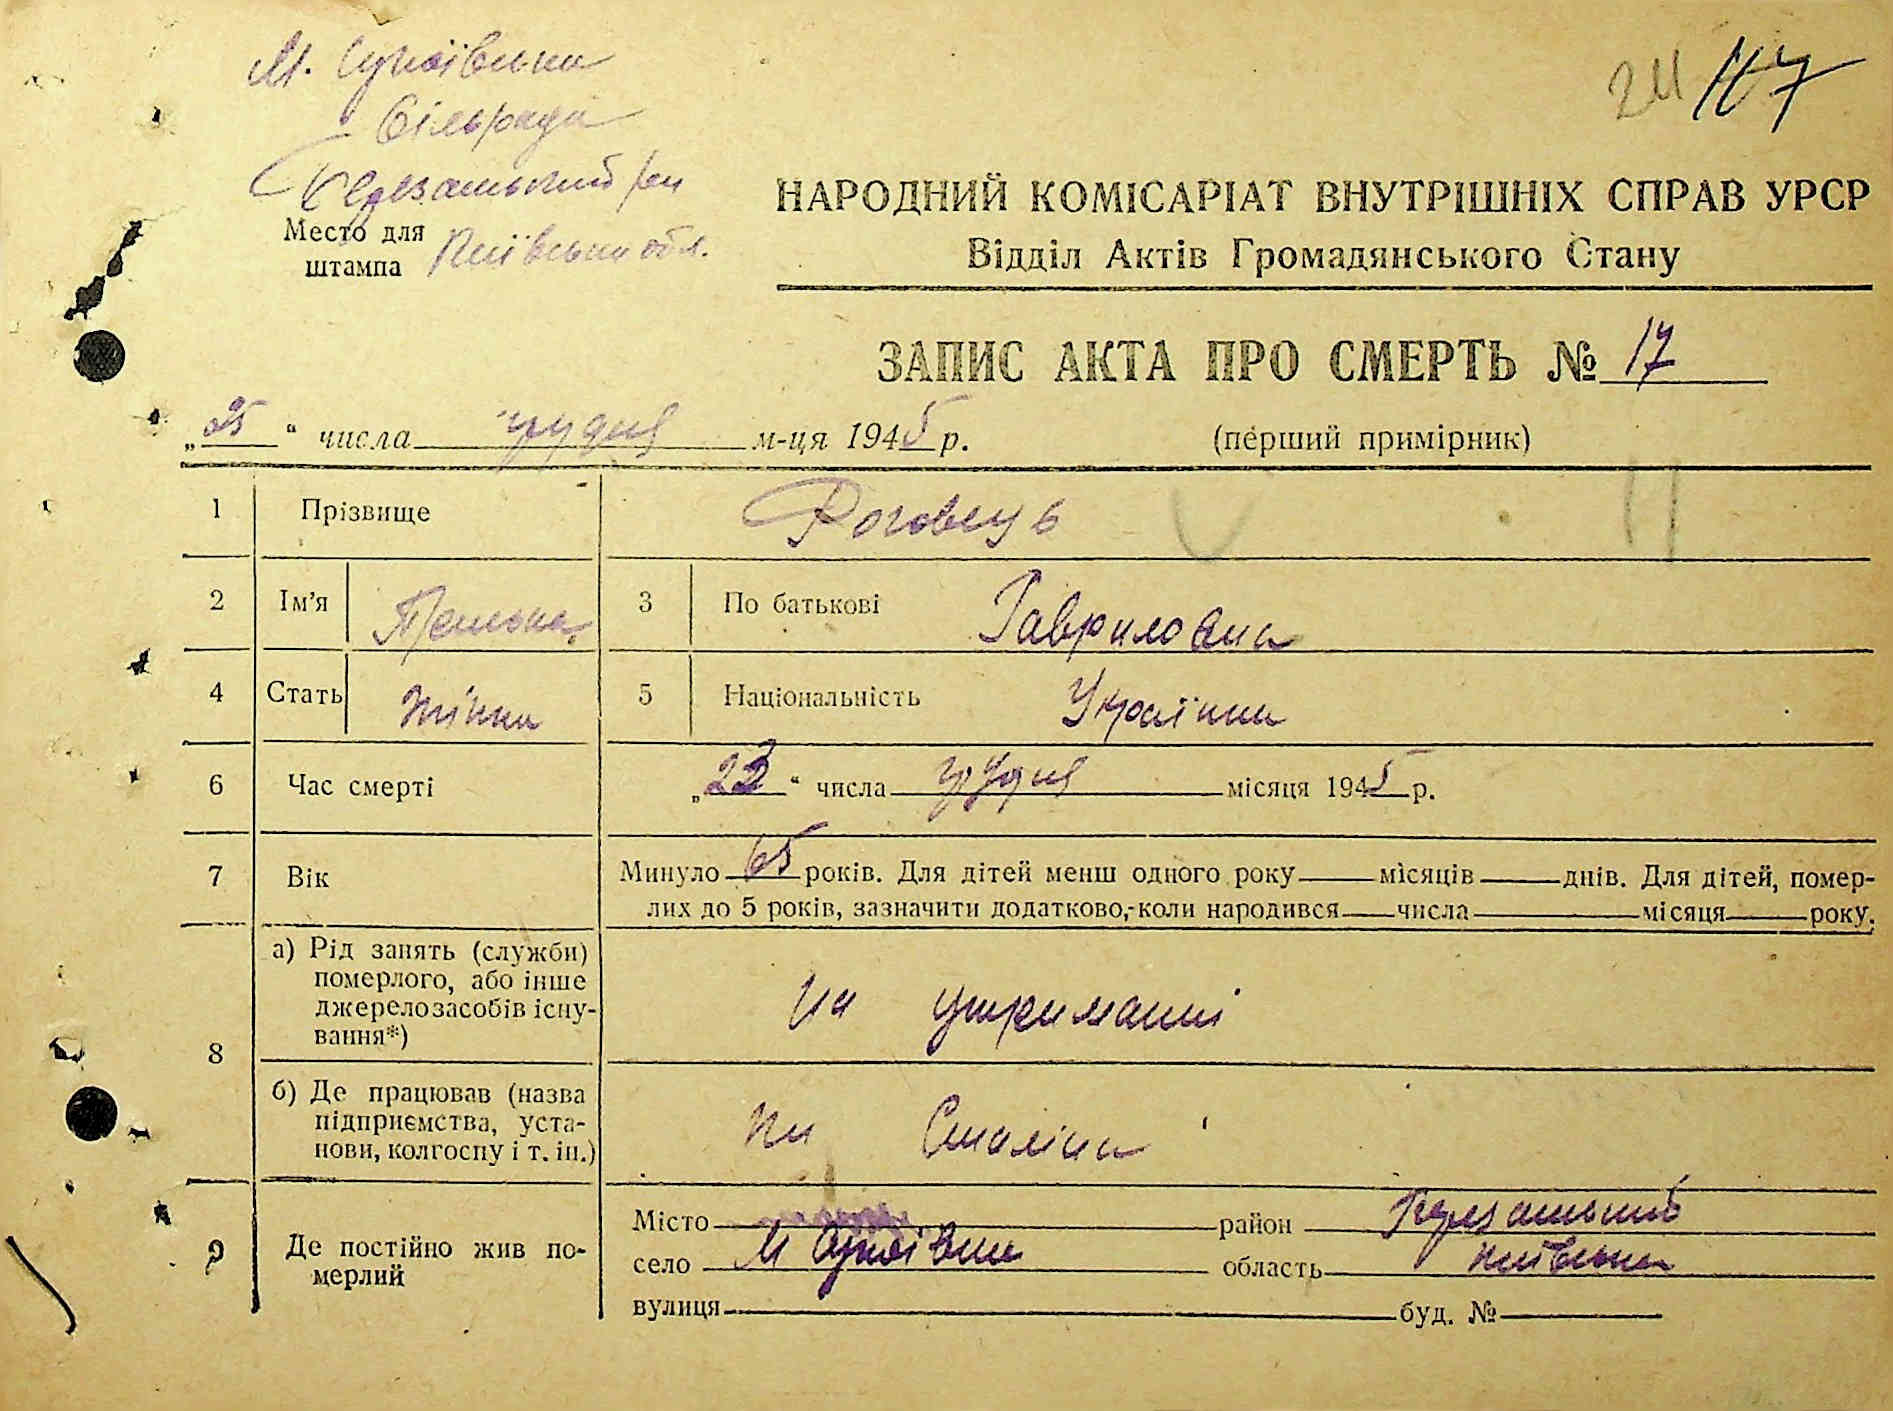 М. Супоївська
Сільрада
Березанський р-н
Место для
штампа
Київська обл.
24 107
НАРОДНИЙ КОМІСАРІАТ ВНУТРІШНІХ СПРАВ УРСР
Відділ Актів Громадянського Стану
ЗАПИС АКТА ПРО СМЕРТЬ № 17
„25“ числа грудня м-ця 1945 р.
(перший примірник)
1 Прізвище Роговець
2 Ім’я 3 По батькові Гавриловна
4 Стать Жінка 5 Національність Українка
6 Час смерті „23“ числа грудня місяця 1945 р.
7 Вік Минуло 65 років. Для дітей менш одного року місяців днів. Для дітей, помер-
лих до 5 років, зазначити додатково,-коли народився числа місяця року.
8 а) Рід занять (служби)
померлого, або інше
джерело засобів існу-
вання*)
на утриманні
б) Де працював (назва
підприємства, уста-
нови, колгоспу і т. ін.)
ім Сталіна
9 Де постійно жив по-
мерлий
Місто район Березанський
село М Супоївка область Київська
вулиця буд. №